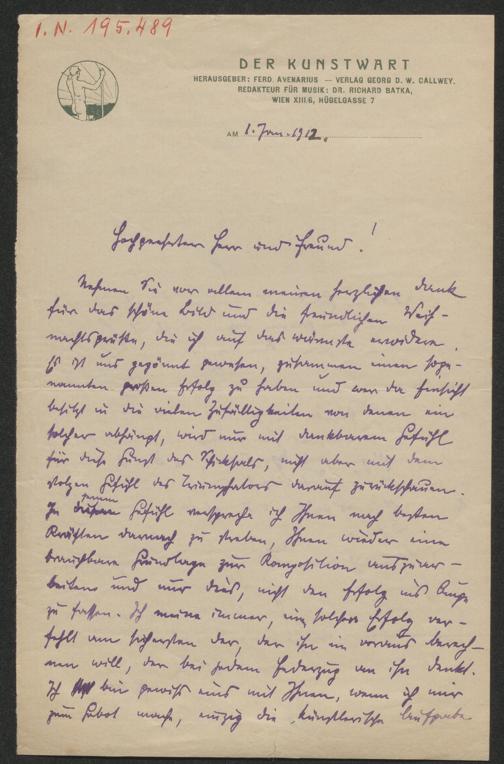 I. N. 195.489
DER KUNSTWART
HERAUSGEBER: FERD. AVENARIUS — VERLAG GEORG D. W. CALLWEY.
REDAKTEUR FÜR MUSIK: DR. RICHARD BATKA,
WIEN XIII/6, HÜGELGASSE 7
AM 1. Jan. 1912.
Hochgeehrter Herr und Freund!
Nehmen Sie vor allem meinen herzlichen Dank
für das schöne Bild und die freundlichen Weih-
nachtsgrüße, die ich auf das wärmste erwidere.
Es ist uns gegönnt gewesen, zusammen einen soge-
nannten großen Erfolg zu haben und wer da Einsicht
besitzt in die vielen Zufälligkeiten von denen ein
solcher abhängt, wird nur mit dankbarem Gefühl
für diese Gunst des Schicksals, nicht aber mit dem
stolzen Gefühl des Triumphators darauf zurückschauen.
In diesem Gefühl verspreche ich Ihnen nach besten
Kräften darnach zu streben, Ihnen wieder eine
brauchbare Grundlage zur Komposition auszuar-
beiten und nur dies, nicht den Erfolg ins Auge
zu fassen. Ich meine immer, ein solcher Erfolg ver-
fehlt am sichersten der, der ihn im voraus berech-
nen will, der bei jedem Federzug an ihn denkt.
Ich bin gewiss eins mit Ihnen, wenn ich mir
zum Gebot mache, einzig die künstlerische Aufgabe